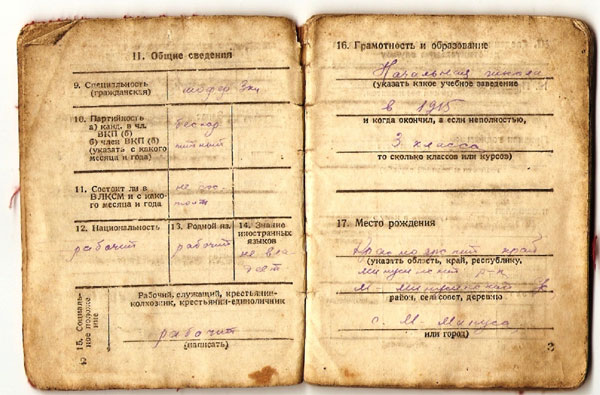 II. Общие сведения
9. Специальность
(гражданская)
шофер 3 кл
10. Партийность
а) канд. в чл.
ВКП (б)
б) член ВКП (б)
(указать с какого
месяца и года)
беспар
тийный
11. Состоит ли в
ВЛКСМ и с како-
го месяца и года
не сос-
тоит
12. Национальность
рабочий
13. Родной яз.
рабочий
14. Знание
иностранных
языков
не вла
деет
15. Социаль-
ное положе-
ние
Рабочий, служащий, крестьянин-
колхозник, крестьянин-единоличник
рабочий
(написать)
2
16. Грамотность и образование
Начальная школа
(указать какое учебное заведение
в 1915
и когда окончил, а если неполностью,
3 класса
то сколько классов или курсов)
17. Место рождения
Красноярский край
(указать область, край, республику,
Минусинский р-н
М-Минусинский
район, сельсовет, деревню
с. М-Минуса
или город)
3